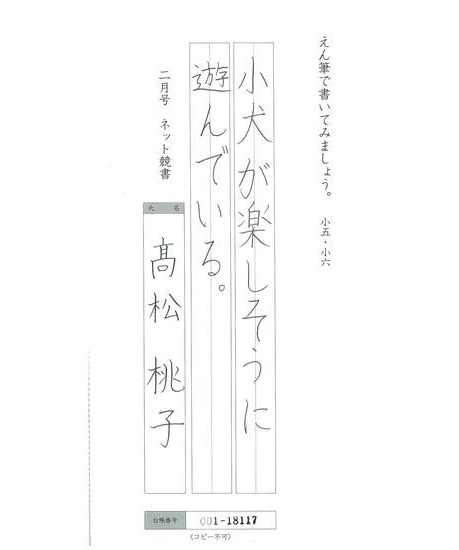 えん筆で書いてみましょう。 小五・小六
小犬が楽しそうに
遊んでいる。
二月号 ネット競書
氏名
髙松 桃子
台帳番号 001-18117
(コピー不可)